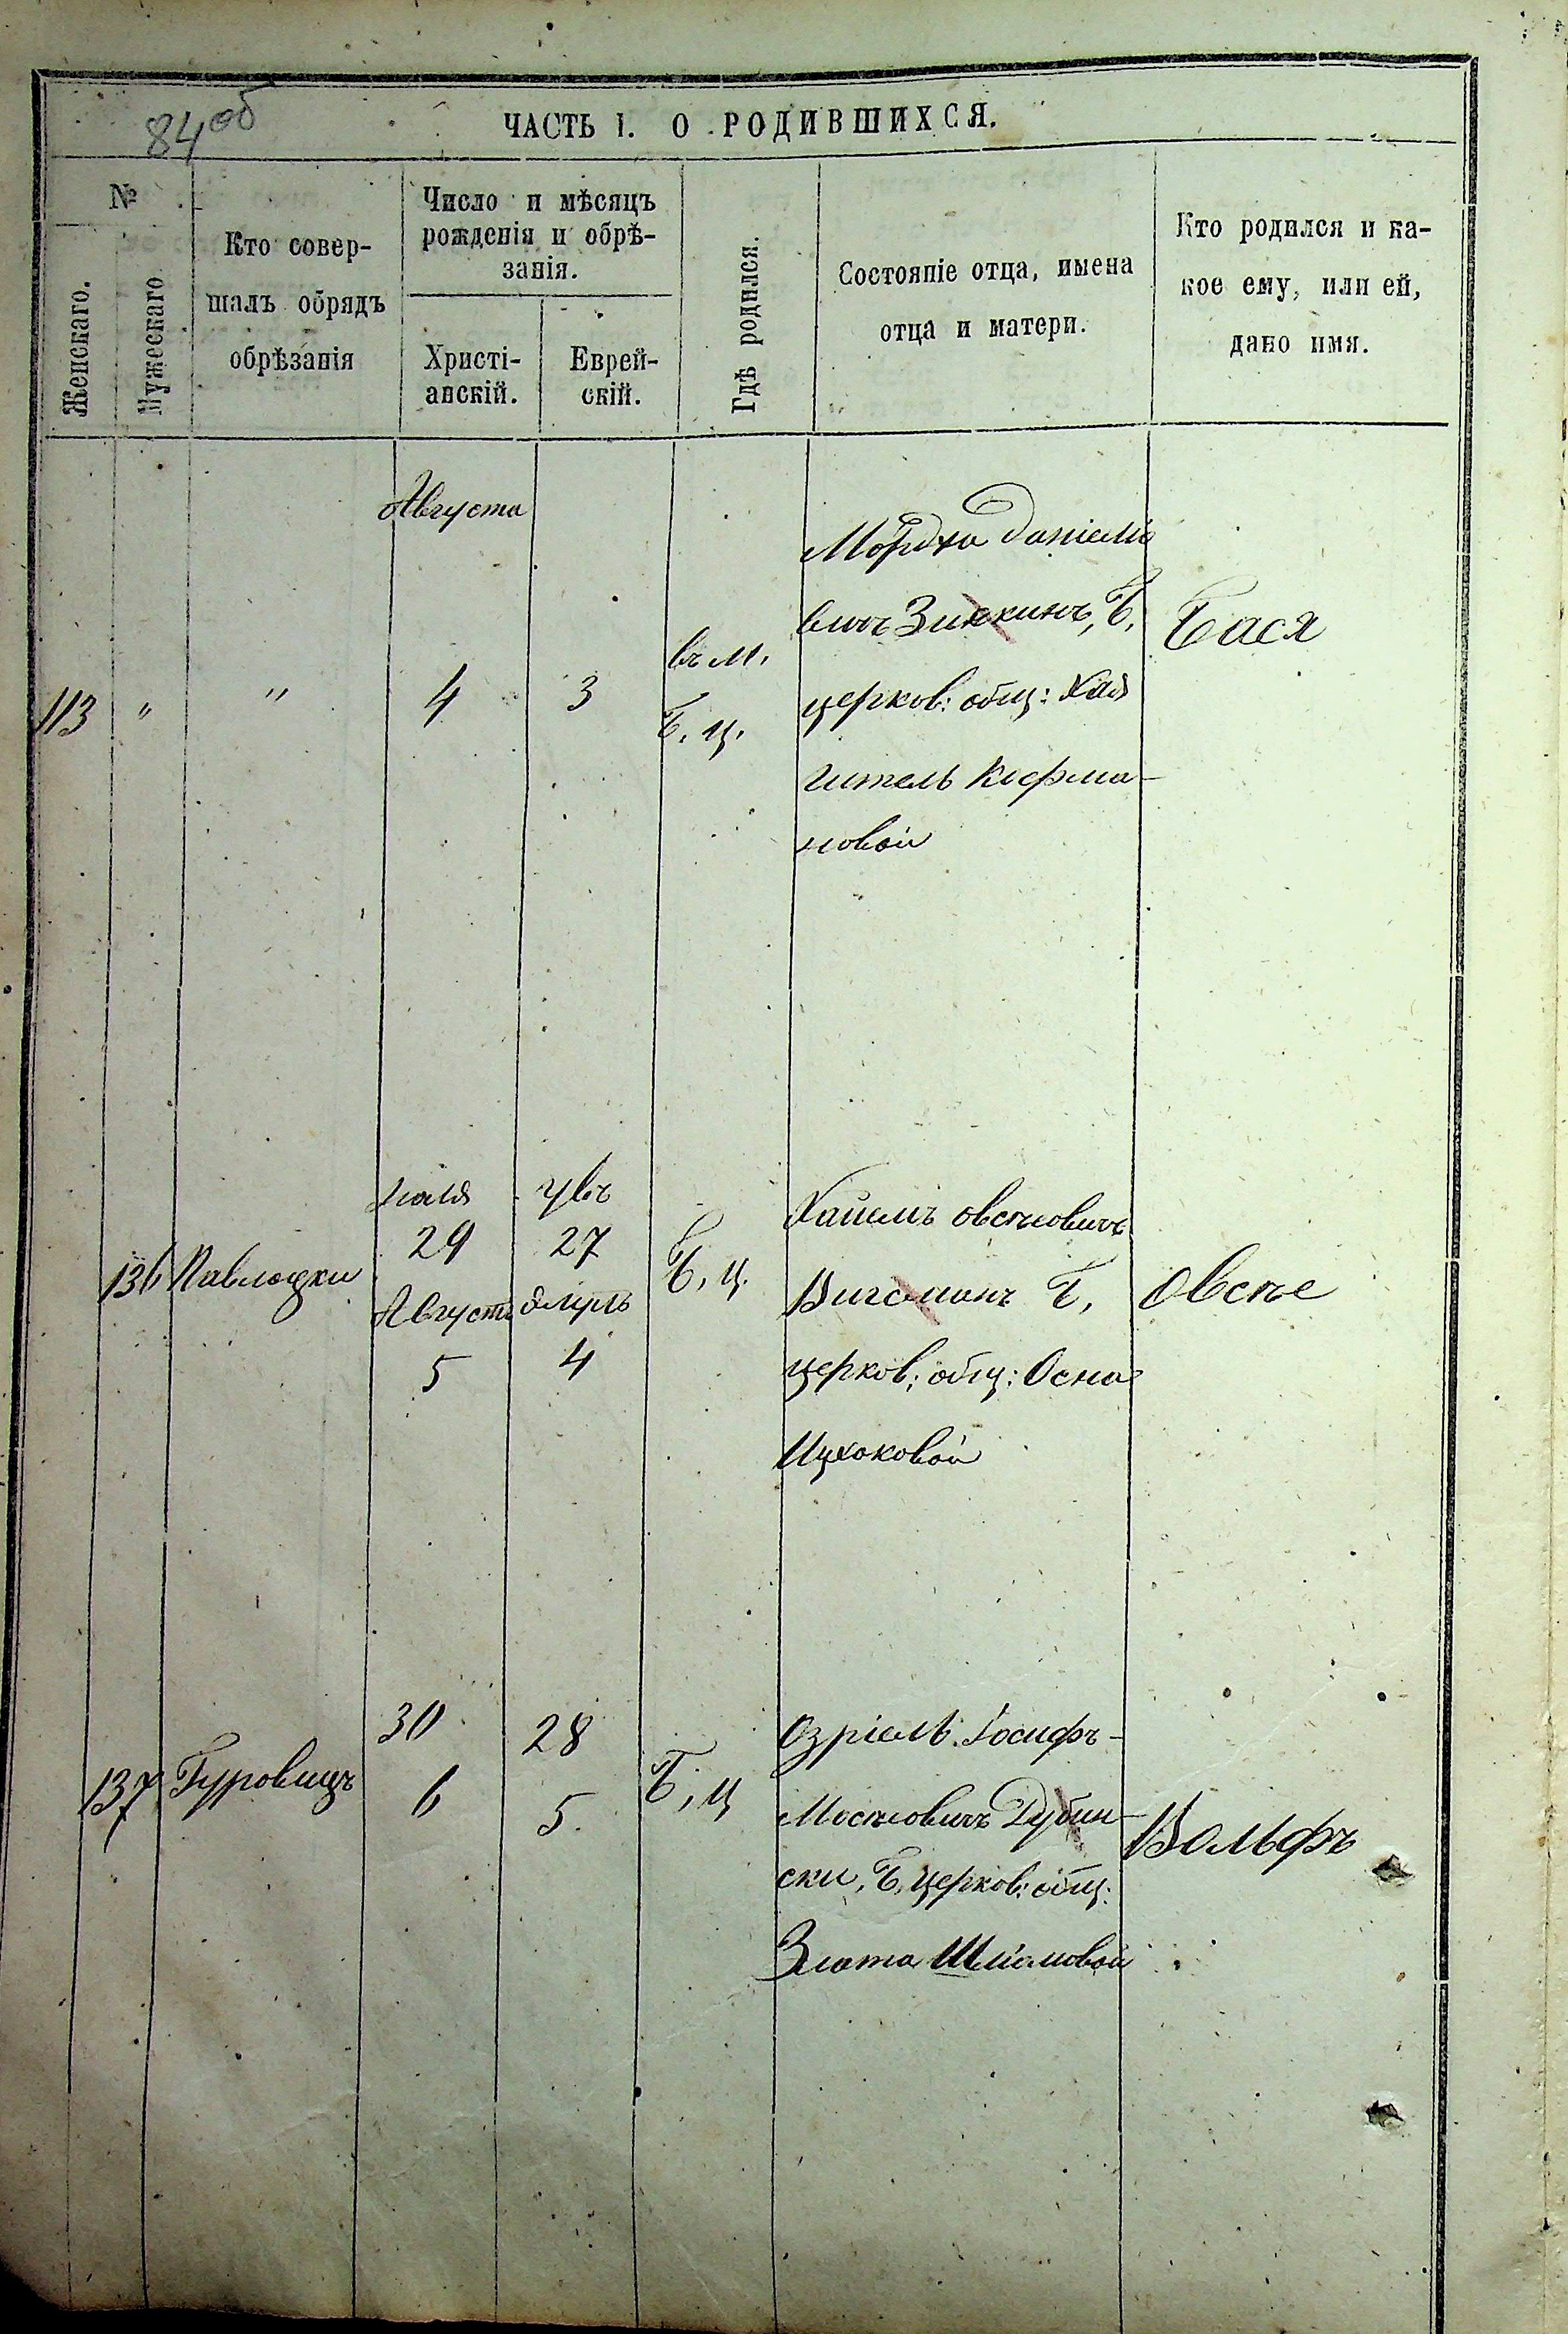 84об
ЧАСТЬ I. О РОДИВШИХСЯ.
№
Женскаго.
Мужескаго
Кто совер-
шалъ обрядъ
обрѣзанія
Число и мѣсяцъ
рожденія и обрѣ-
занія.
Христі-
анскій.
Еврей-
скій.
Гдѣ родился.
Состояніе отца, имена
отца и матери.
Кто родился и ка-
кое ему, или ей,
дано имя.
Августа
113 " " 4 3
въ м.
Б. ц.
Мордха Даніеле
вичъ Зинкинъ, Б,
церков: общ: Хая
Гитель Кофма-
новой
Бася
136 Павлоцки
іюля
29
Августа
5
27
4
Б, ц.
Хаимъ Овсѣевичъ
Вигоманъ Б,
церков: общ: Осна
Ицхоковой
Овсѣе
137 Гуровицъ
30
6
28
5.
Б, ц
Озріель Іосифъ-
Мосѣевичъ Дубин-
ски, Б, церков: общ:
Злата Шліомовой
Вольфъ